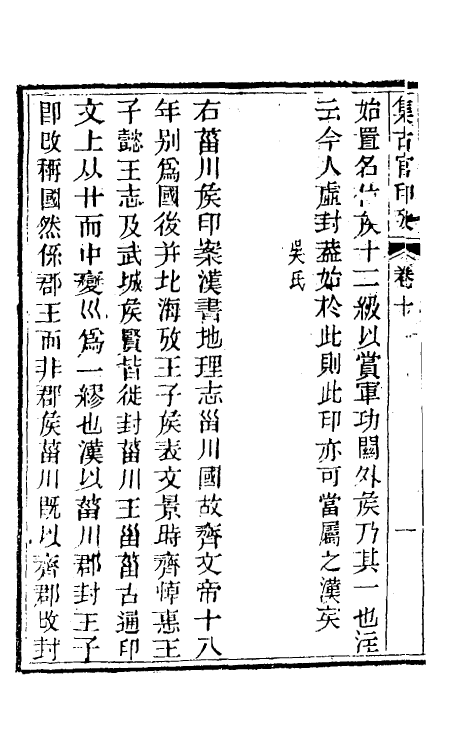 集古官印攷 卷十 一
始置名位矦十二級以賞軍功關外矦乃其一也注
云今人虛封葢始於此則此印亦可當屬之漢矣
吳氏
右菑川矦印案漢書地理志甾川國故齊文帝十八
年别爲國後并北海攷王子矦表文景時齊悼惠王
子懿王志及武城矦賢皆徙封菑川王甾菑古通印
文上从廿而中變巛爲一繆也漢以菑川郡封王子
卽改稱國然係郡王而非郡矦菑川旣以齊郡改封